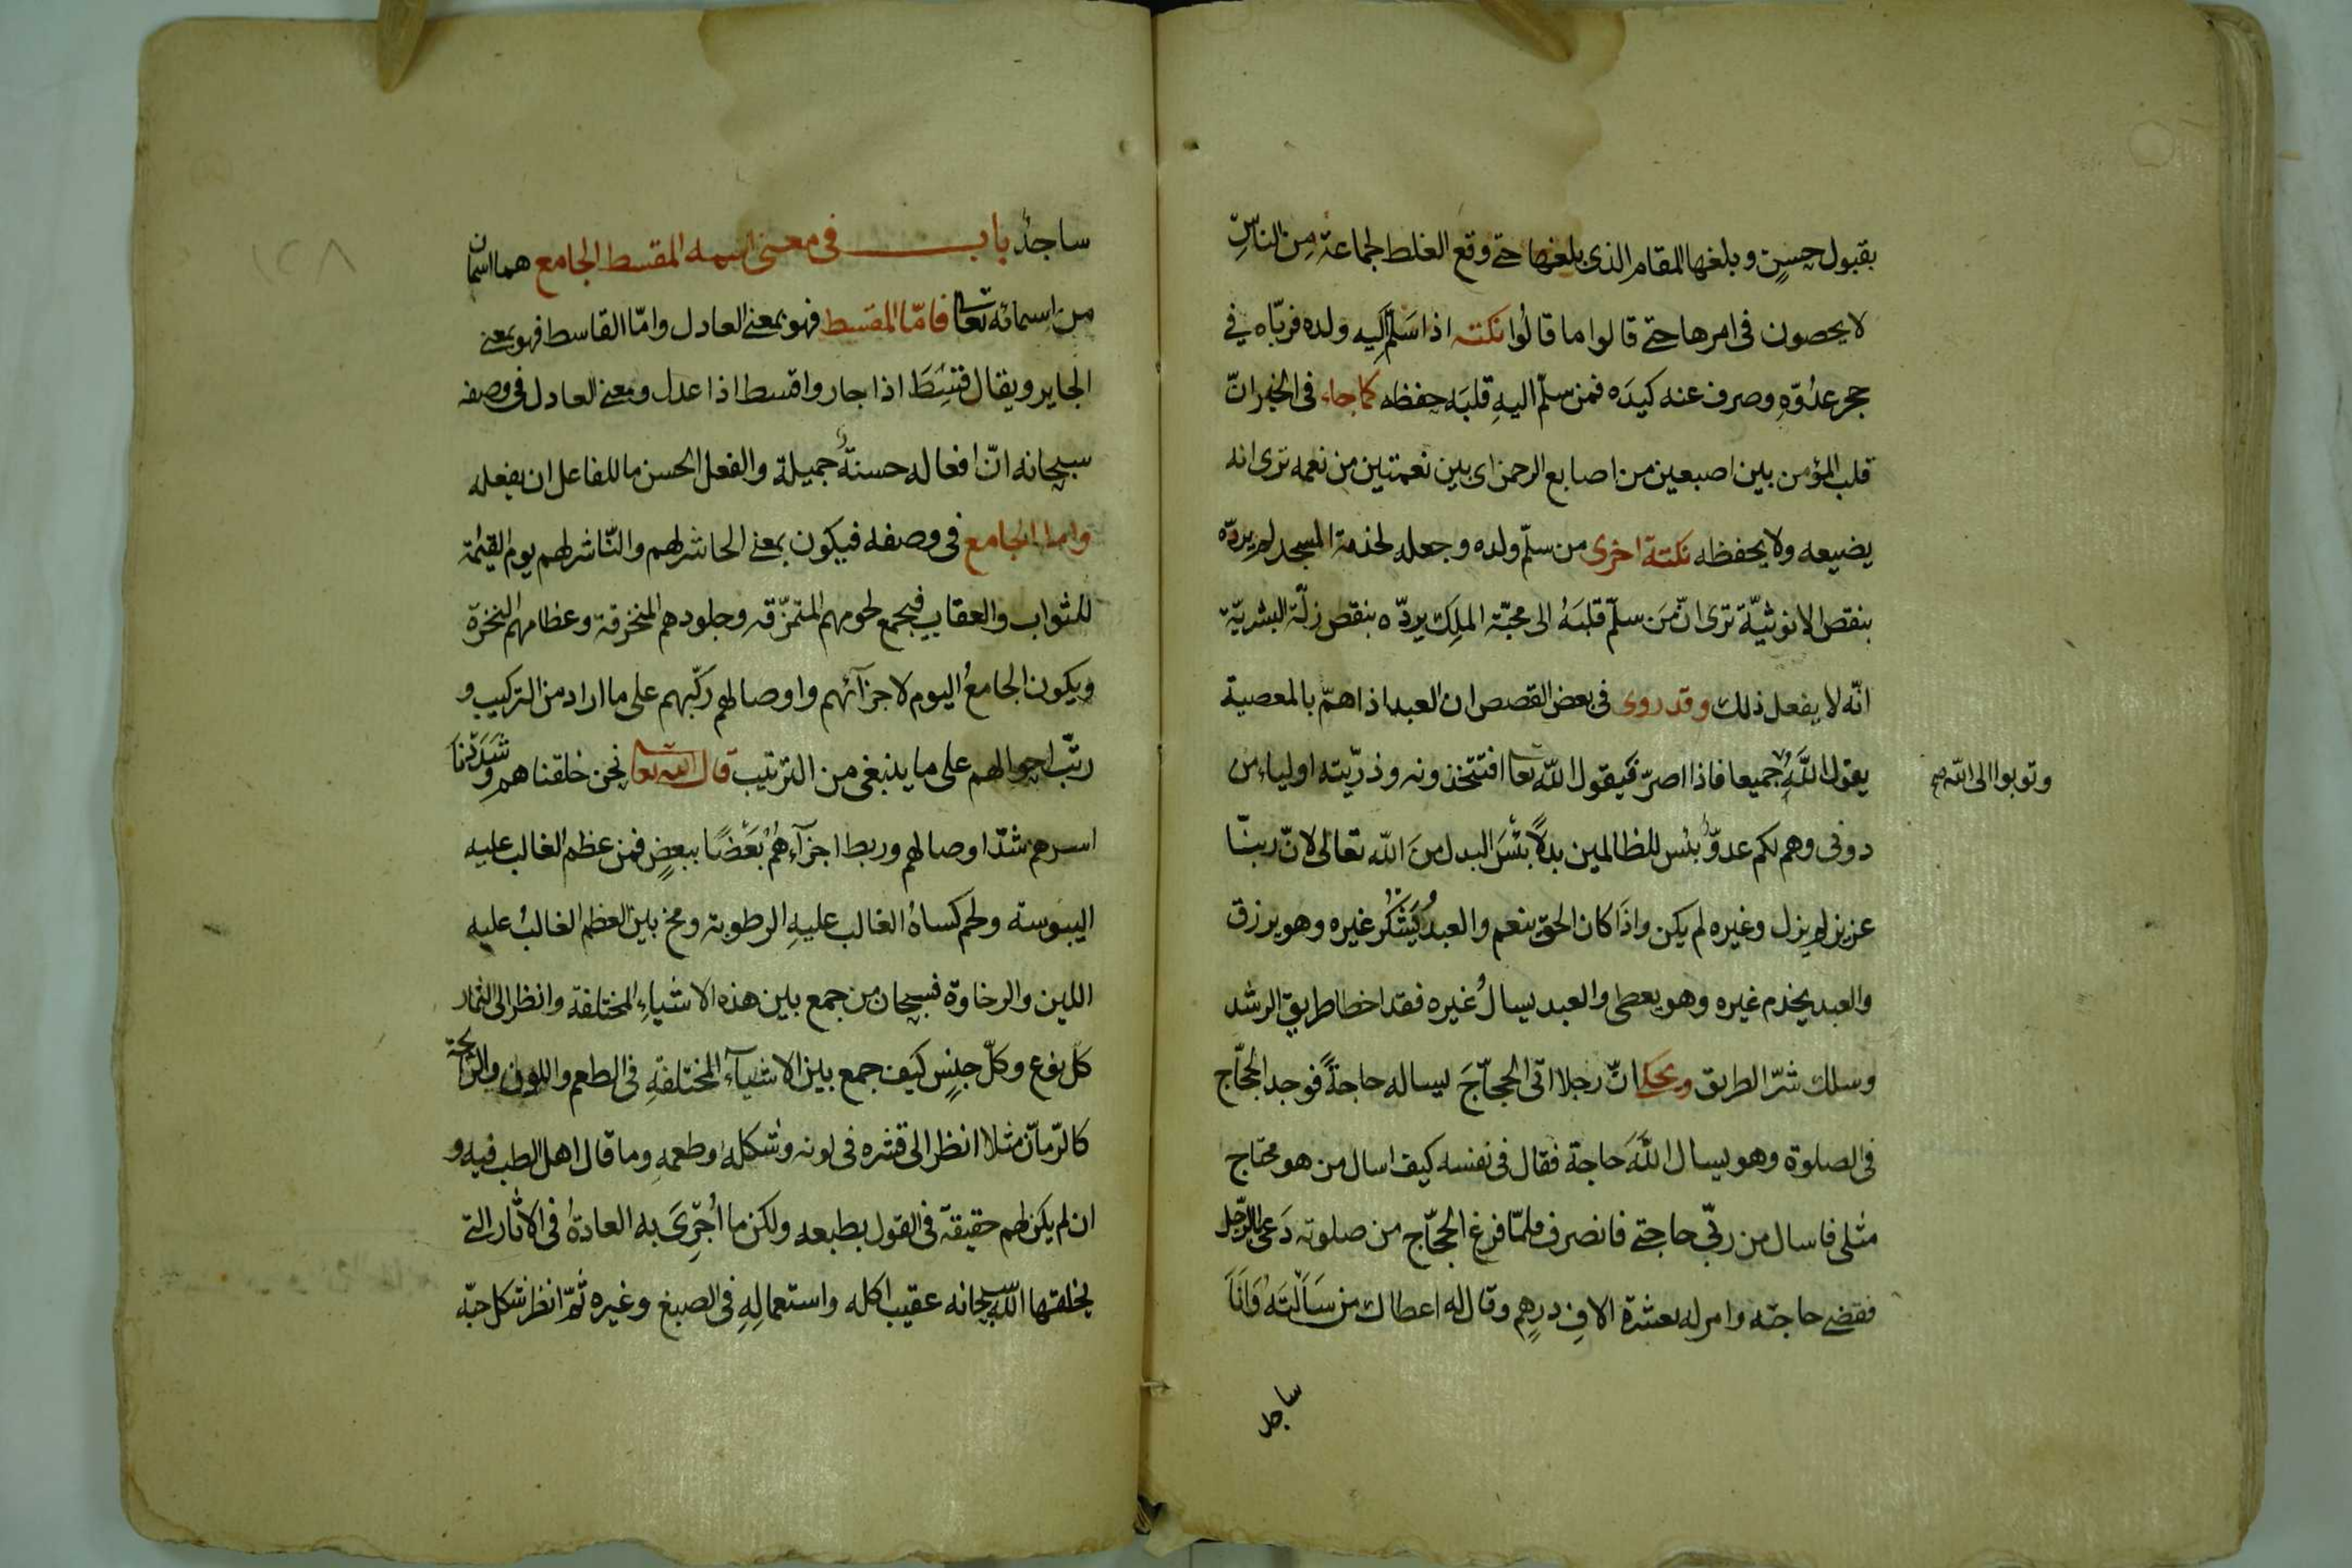 بقبول حسنٍ وبلغها المقام الذى بلغها حتى وقع الغلط لجماعة من الناسِ
لا يحصون فى امرها حتى قالوا ما قالُوا نكتة اذا سَلّم اليه ولده فربّاه فى
حجر عدُوّهِ وصرف عنه كيدَه فمن سلّم اليهِ قلبَه حفظه كما جاء فى الخبر انّ
قلب المؤمن بين اصبعين من اصابع الرحمن اى بين نعمتين من نعمه ترى انه
يضيعه ولا يحفظه نكتة اخرى من سلّم ولده وجعله لخدمة المسجد لم يردّه
بنقص الانوثيّة ترى انّ مَن سلّم قلبَهُ الى محبّة الملِك يردّه بنقص زلّة البشريّة
انّه لا يفعل ذلك وقد روى فى بعض القصص ان العبد اذا همّ بالمعصية
يقول اللّهُ جميعا فاذا اصرّ فيقول اللّه تعا افتتخذونه وذرّيته اولياء من
وتوبوا الى اللّه صح
دونى وهم لكم عدوٌّ بئس للظالمين بدلًا بئسَ البدل منَ اللّه تعالى لانّ ربنّا
عزيز لم يزل وغيره لم يكن واذَا كان الحق ينعم والعبدُ يَشْكُر غيره وهو يرزق
والعبد يخدم غيره وهو يعطى والعبد يسالُ غيره فقد اخطا طريق الرشد
وسلك شرّ الطريق ويحكى انّ رجلا اتى الحجاّجَ ليساله حاجةً فوجد الحجّاج
فى الصلوة وهو يسال اللّهَ حاجة فقال فى نفسه كيف اسال من هو محتاج
مثلى فاسال من ربّى حاجتى فانصرف فلمّا فرغ الحجّاج من صلوته دَعى الرّجل
فقضى حاجته وامر له بعشرة الافِ درهم وقال له اعطاك من سَاَلْتَه وَانَا
ساجد
ساجدٌ باب فى معنى اسمه المقسط الجامع هما اسمان
من اسمائه تعالى فامّا المقسط فهو بمعنى العادل وامّا القاسط فهو بمعنى
الجاير ويقال قسَطَ اذا جار واقسط اذا عدل ومعنى العادل فى وصفه
سبحانه انّ افعاله حسنةٌ جميلة والفعل الحسن ما للفاعل ان يفعله
وامّا الجامع فى وصفه فيكون بمعنى الحاشر لهم والنّاشر لهم يوم القيمة
للثواب والعقاب فيجمع لحومهم المتمزّقه وجلودهم المنخرقة وعظامهم النخرة
ويكون الجامعُ اليوم لاجزآئهم واوصالهم ركّبهم على ما اراد من التركيب و
رتّب احوالهم على ما ينبغى من الترتيب قال اللّه تعا نحن خلقناهم وشَدَدْنَا
اسرهم شدّ اوصالهم وربط اجزآءهُم بَعْضًا ببعضٍ فمن عظم الغالب عليه
اليبوسة ولحم كساهُ الغالب عليهِ الرطوبة ومخ بين العظم الغالبُ عليه
اللين والرخاوة فسبحان من جمع بين هذه الاشياءِ المختلفة وانظر الى الثمار
كل نوع وكلّ جنسٍ كيَف جمع بين الاشيآء المختلفةِ فى الطعم واللون والرّايحة
كالرّمّان مثلا انظر الى قشره فى لونه وشكله وطعمهِ وما قال اهل الطب فيه و
ان لم يكن لهم حقيقة فى القول بطبعه ولكن ما اُجْرِىَ به العادةُ فى الاثار التى
يخلقها اللّه سبحانه عقيب اكله واستعمالِهِ فى الصبغ وغيره ثمّ انظر شكل حبّه
١٣٨